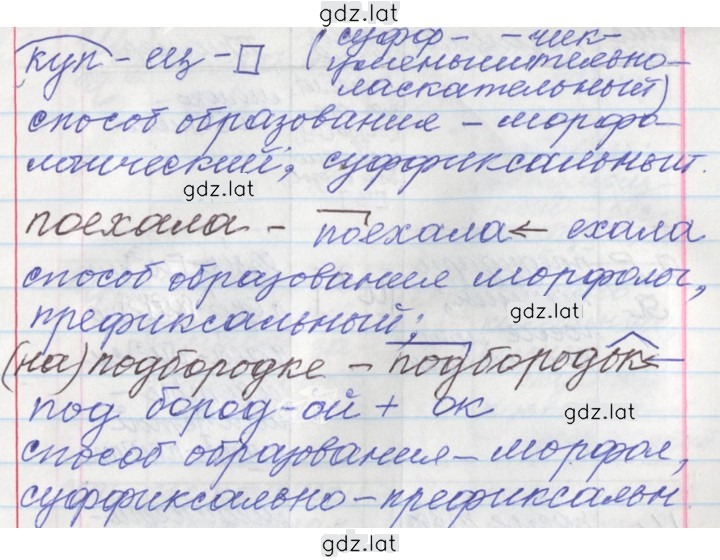 gdz.lat
куп - ец - (суфф- -чик-
уменьшительно-
ласкательный)
способ образования - морфо-
логический, суффиксальный.
gdz.lat
gdz.lat
поехала - поехала ← ехала
способ образования морфолог,
gdz.lat
префиксальный;
(на) подбородке - подбородок ←
под бород-ой + ок
gdz.lat
способ образования - морфол,
суффиксально - префиксальн
gdz.lat